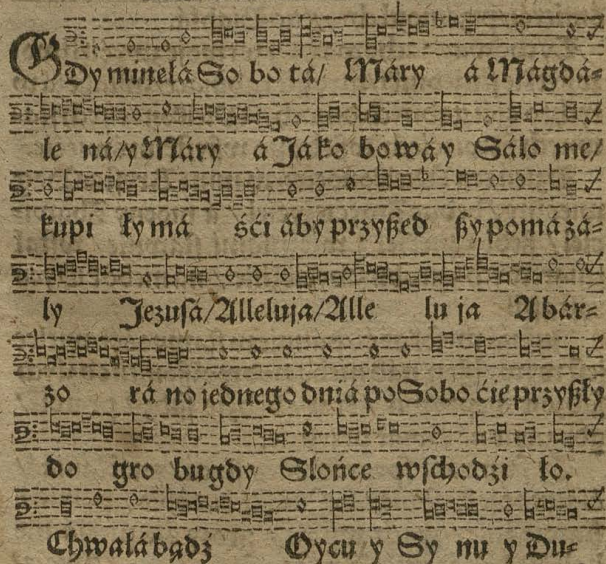 GDy minęłá So bo tá/ Máry á Mágdá=
le ná/y Máry á Jáko bowáy Sálo me/
kupi ły má śći áby przyßed ßy pomázá=
ly Jezusá/Alleluja/Alle lu ja A bár=
zo rá no jednego dniá po Sobo ćie przyßły
do gro bu gdy Słońce wschodźi ło.
Chwałá bądź Oycu y Sy nu y Du=